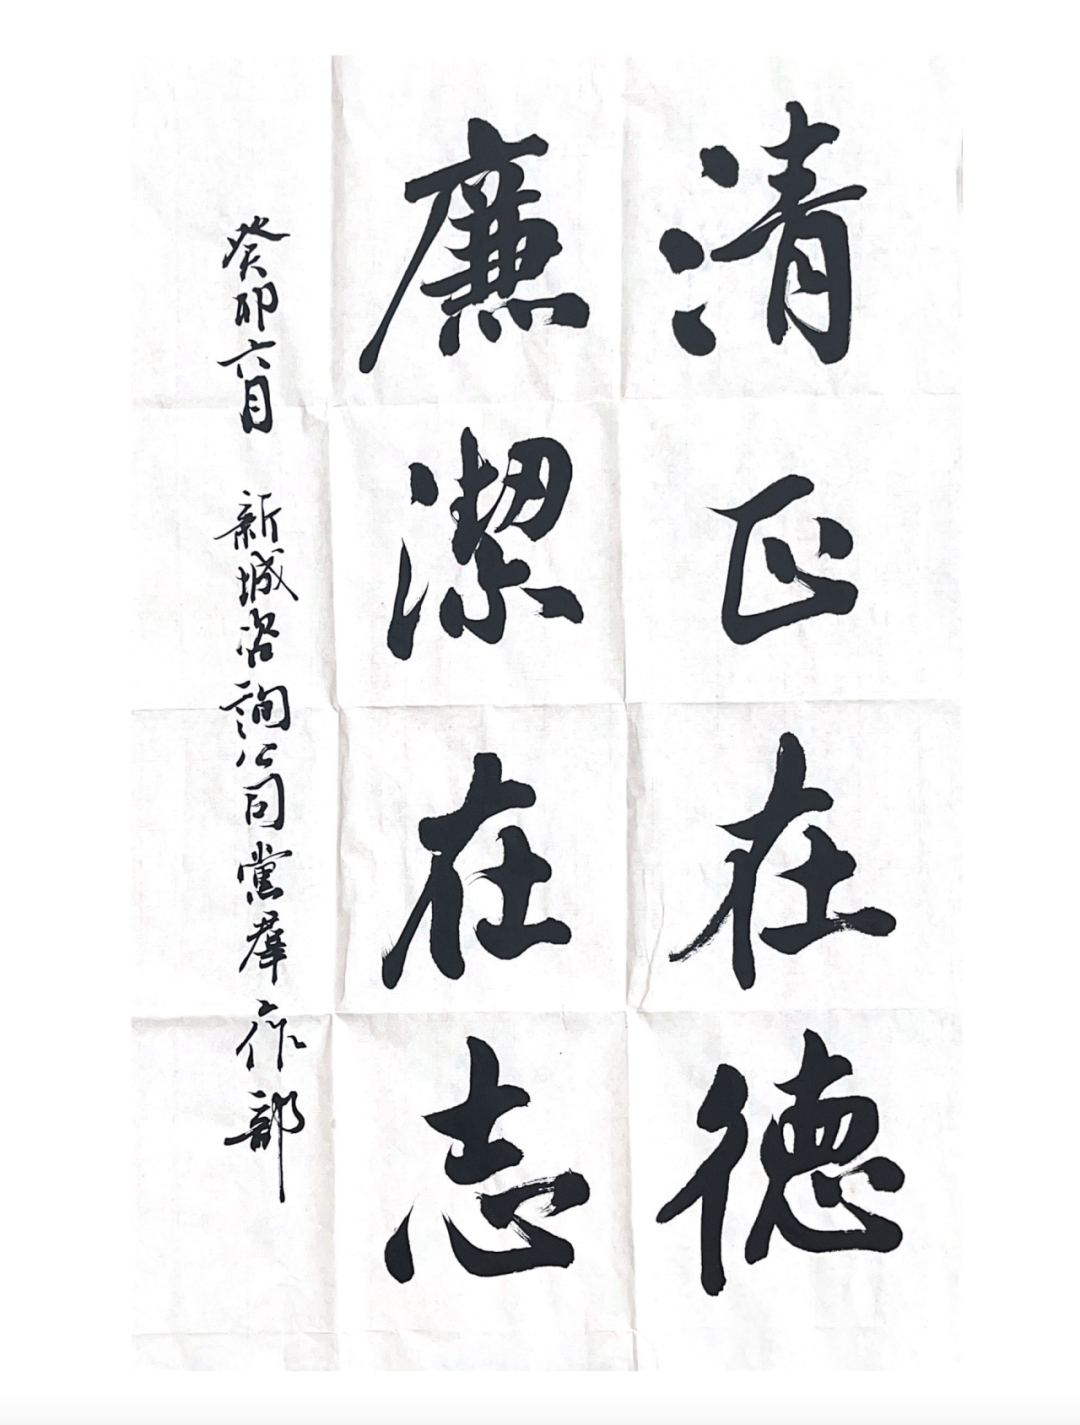 清正在德
廉潔在志
癸卯六月 新城咨詢公司黨羣工作部